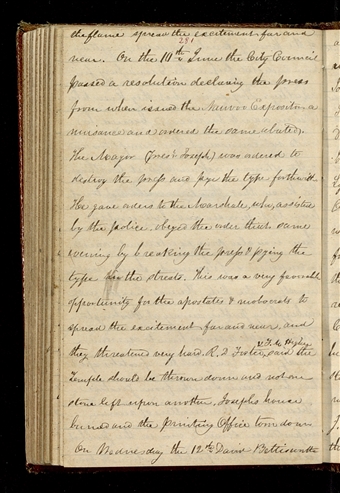 the flame spread the excitement far and
251
near. On the 10th of June the City Council
passed a resolution declaring the press
from when issued the Nauvoo Expositor a
nuisance and ordered the same abated.
The Mayor (Prest Joseph) was ordered to
destroy the press and pye the type forthwith
He gave orders to the Marshale, who, assisted
by the police, obeyed the order that same
evening by breaking the press & pying the
type in the streets. This was a very favorable
opportunity for the apostates & mobocrats to
spread the excitement far and near, and
they threatened very hard. R. D. Foster, said the
Temple should be thrown down and not one
stone left upon another, Josephs house
burned and the printing Office torn down
On Wednesday the 12th David Bettisworth